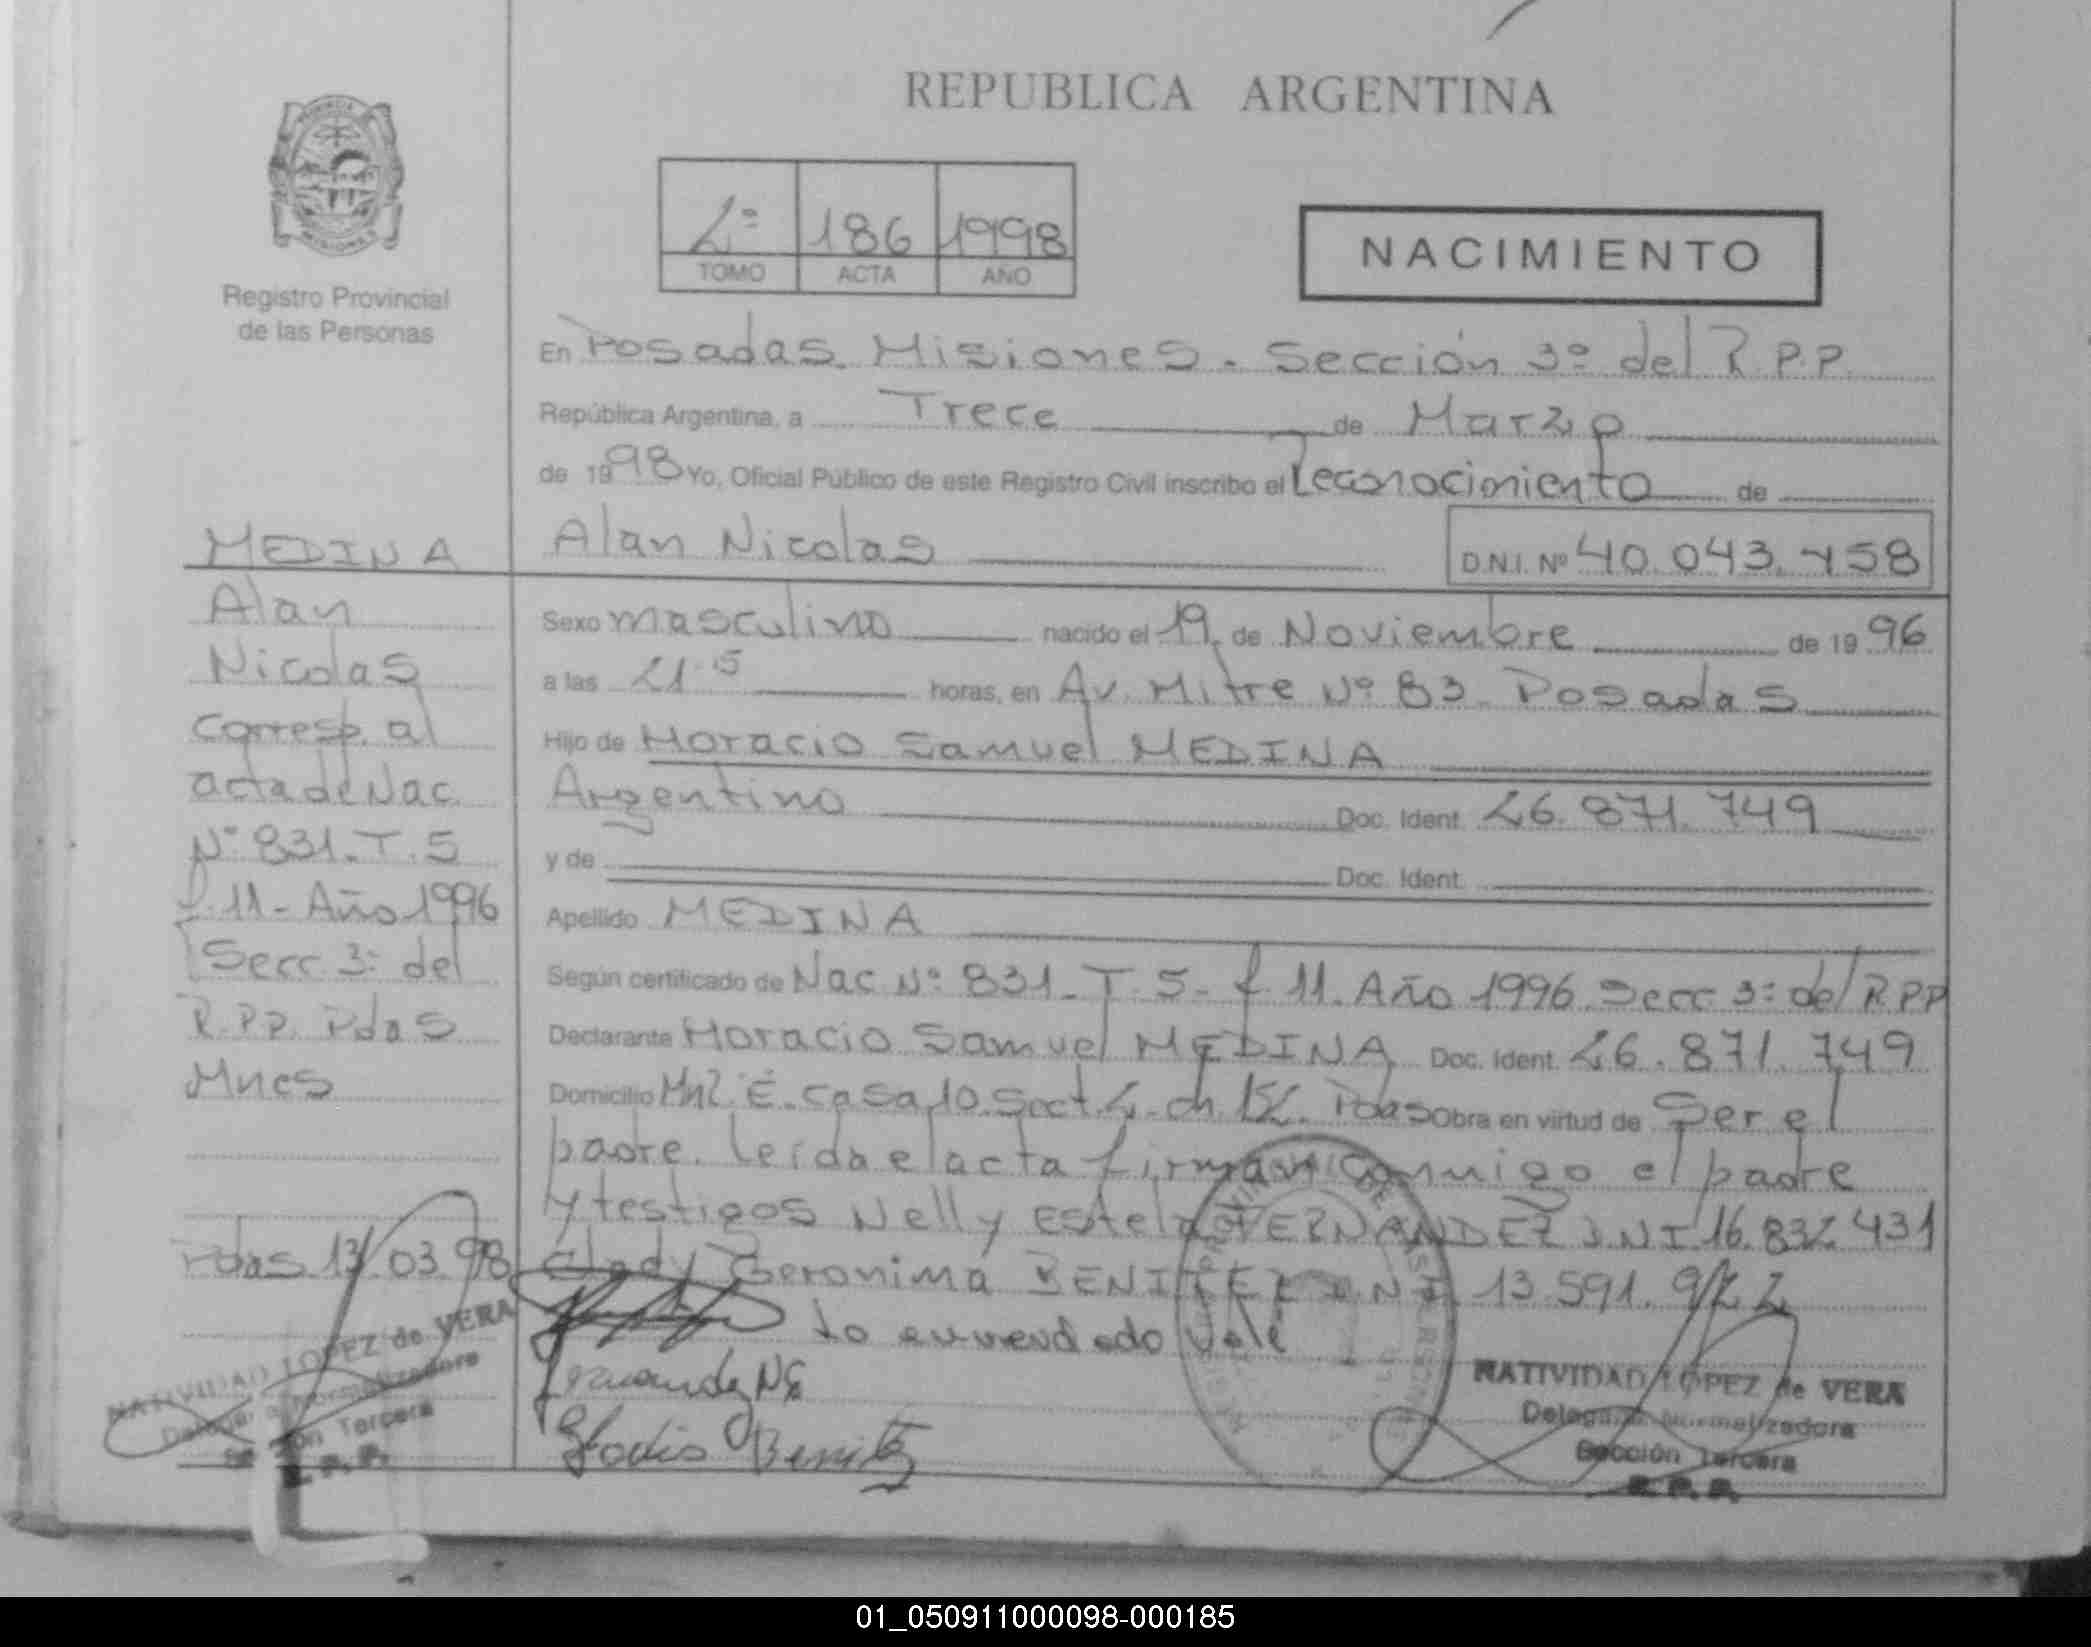 REPUBLICA ARGENTINA
2º 186 1998
TOMO ACTA AÑO
NACIMIENTO
Registro Provincial
de las Personas
En Posadas. Misiones. Sección 3º del R.P.P.
República Argentina, a Trece de Marzo
de 1998 Yo, Oficial Público de este Registro Civil inscribo el reconocimiento de
Alan Nicolas D.N.I. Nº 40.043.758
Sexo masculino nacido el 19. de Noviembre de 1996
a las 21.15 horas, en Av. Mitre Nº 83. Posadas
Hijo de Horacio Samuel MEDINA
Argentino Doc. Ident. 26.871.749
y de Doc. Ident.
Apellido MEDINA
Según certificado de Nac Nº 831_T.5_f.11.Año 1996 Secc 3º del R.P.P
Declarante Horacio Samuel MEDINA Doc. Ident. 26.871.749
Domicilio Mnz. E. casa 10. Sect. 2. ch. 152. Pdas Obra en virtud de Ser el
padre. leída el acta firman conmigo el padre
y testigos Nelly Estela FERNANDEZ DNI 16.832.431
Glady Geronima BENITEZ D.N.I. 13.591.922
lo enmendado vale
Fernandez NE
Gladis Benitez
NATIVIDAD LOPEZ de VERA
Delegada Normalizadora
Sección Tercera
R.P.P.
MEDINA
Alan
Nicolas
Corresp. al
acta de Nac.
Nº 831_T.5
f.11_Año 1996
Secc 3º del
R.P.P. Pdas
Mnes
Pdas 13/03/98
NATIVIDAD LOPEZ de VERA
Delegada Normalizadora
Sección Tercera
R.P.P.
01_050911000098-000185